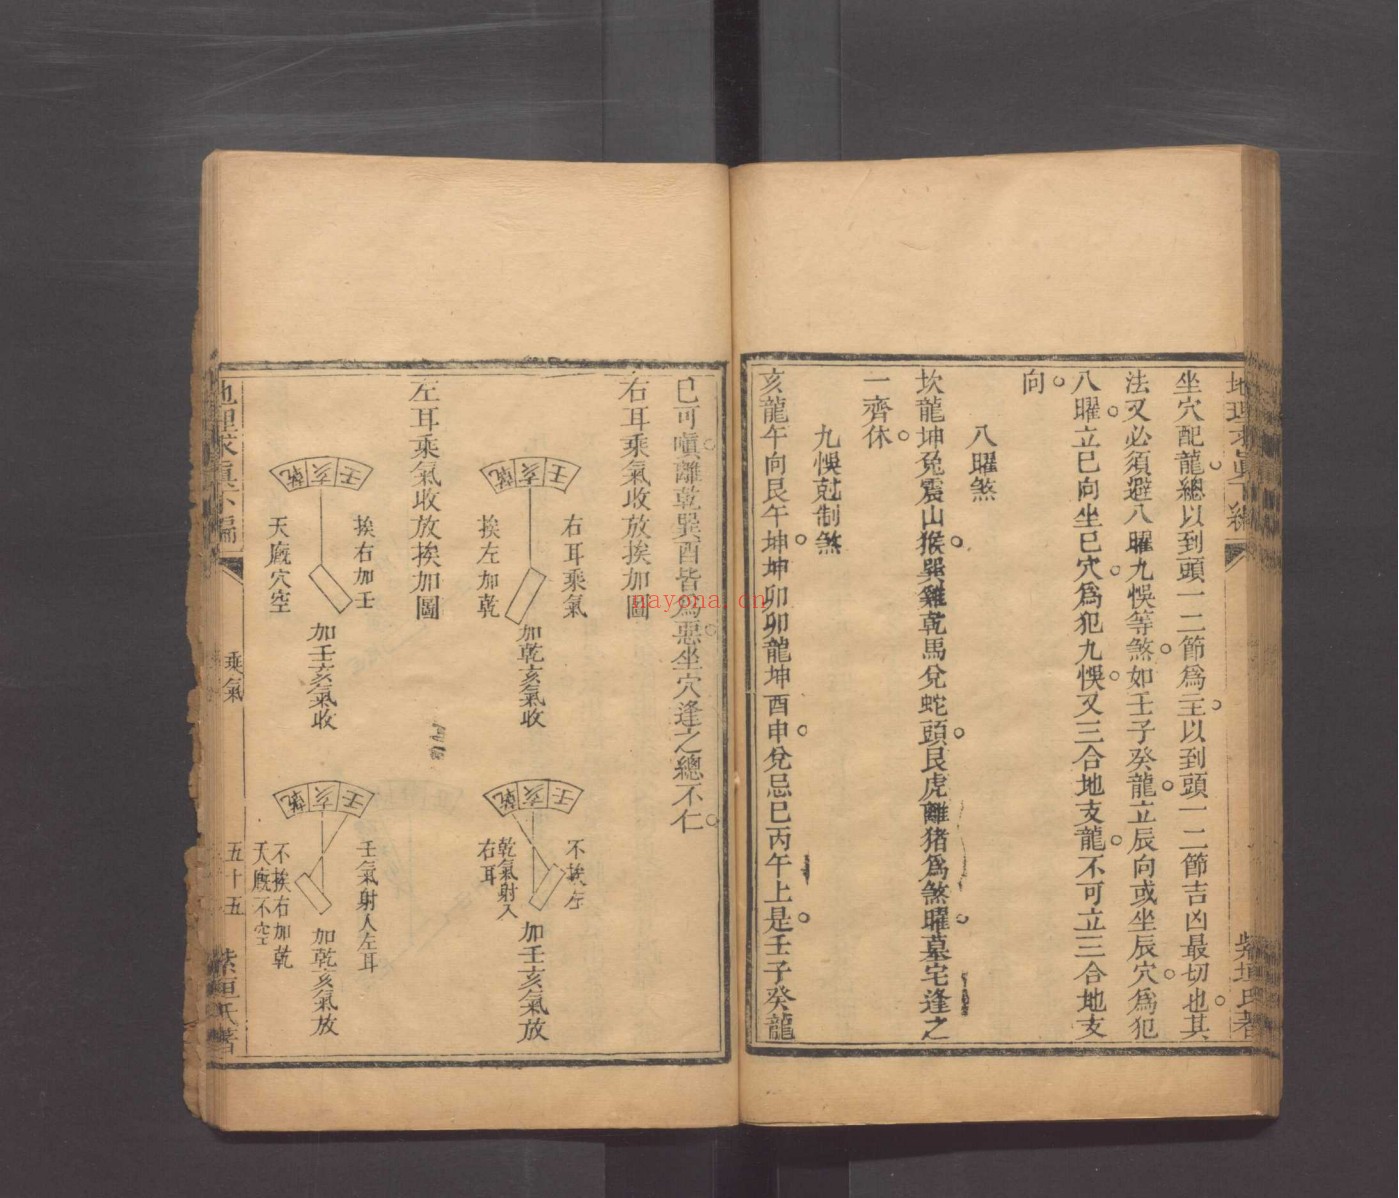 地理求眞下編
紫垣氏著
坐穴配龍總以到頭一二節爲主以到頭一二節吉凶最切也其
法又必須避八曜九悞等煞如壬子癸龍立辰向或坐辰穴爲犯
八曜立巳向坐巳穴爲犯九悞又三合地支龍不可立三合地支
向
八曜煞
坎龍坤兔震山猴巽雞乾馬兌蛇頭艮虎離猪爲煞曜墓宅逢之
一齊休
九悞尅制煞
亥龍午向艮午坤坤卯卯龍坤酉申兌忌巳丙午上是壬子癸龍
巳可嗔離乾巽酉皆爲惡坐穴逢之總不仁
右耳乘氣收放挨加圖
壬亥乾
右耳乘氣
挨左加乾
加乾亥氣收
壬亥乾
不挨左
乾氣射入
右耳
加壬亥氣放
左耳乘氣收放挨加圖
壬亥乾
挨右加壬
天廐穴空
加壬亥氣收
壬亥乾
壬氣射人左耳
不挨右加乾
天廐不空
加乾亥氣放
地理求眞下編
乘氣
五十五
紫垣氏著
nayona.cn